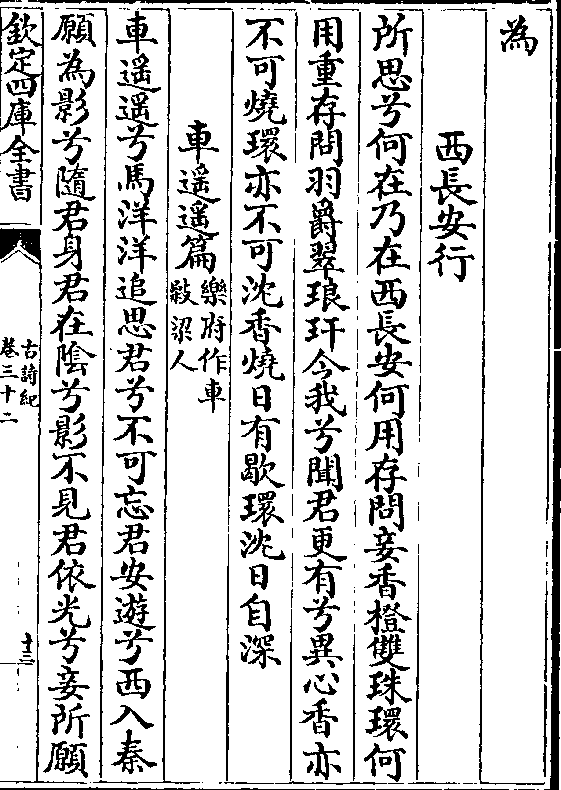 為
西長安行
所思兮何在乃在西長安何用存問妾香橙雙珠環何
用重存問羽爵翠琅玕今我兮聞君更有兮異心香亦
不可燒環亦不可沈香燒日有歇環沈日自深
車遥遥篇樂府作車
敹梁人
車遥遥兮馬洋洋追思君兮不可忘君安遊兮西入秦
願為影兮隨君身君在陰兮影不見君依光兮妾所願
欽定四庫全書
古詩紀
卷三十二
十三